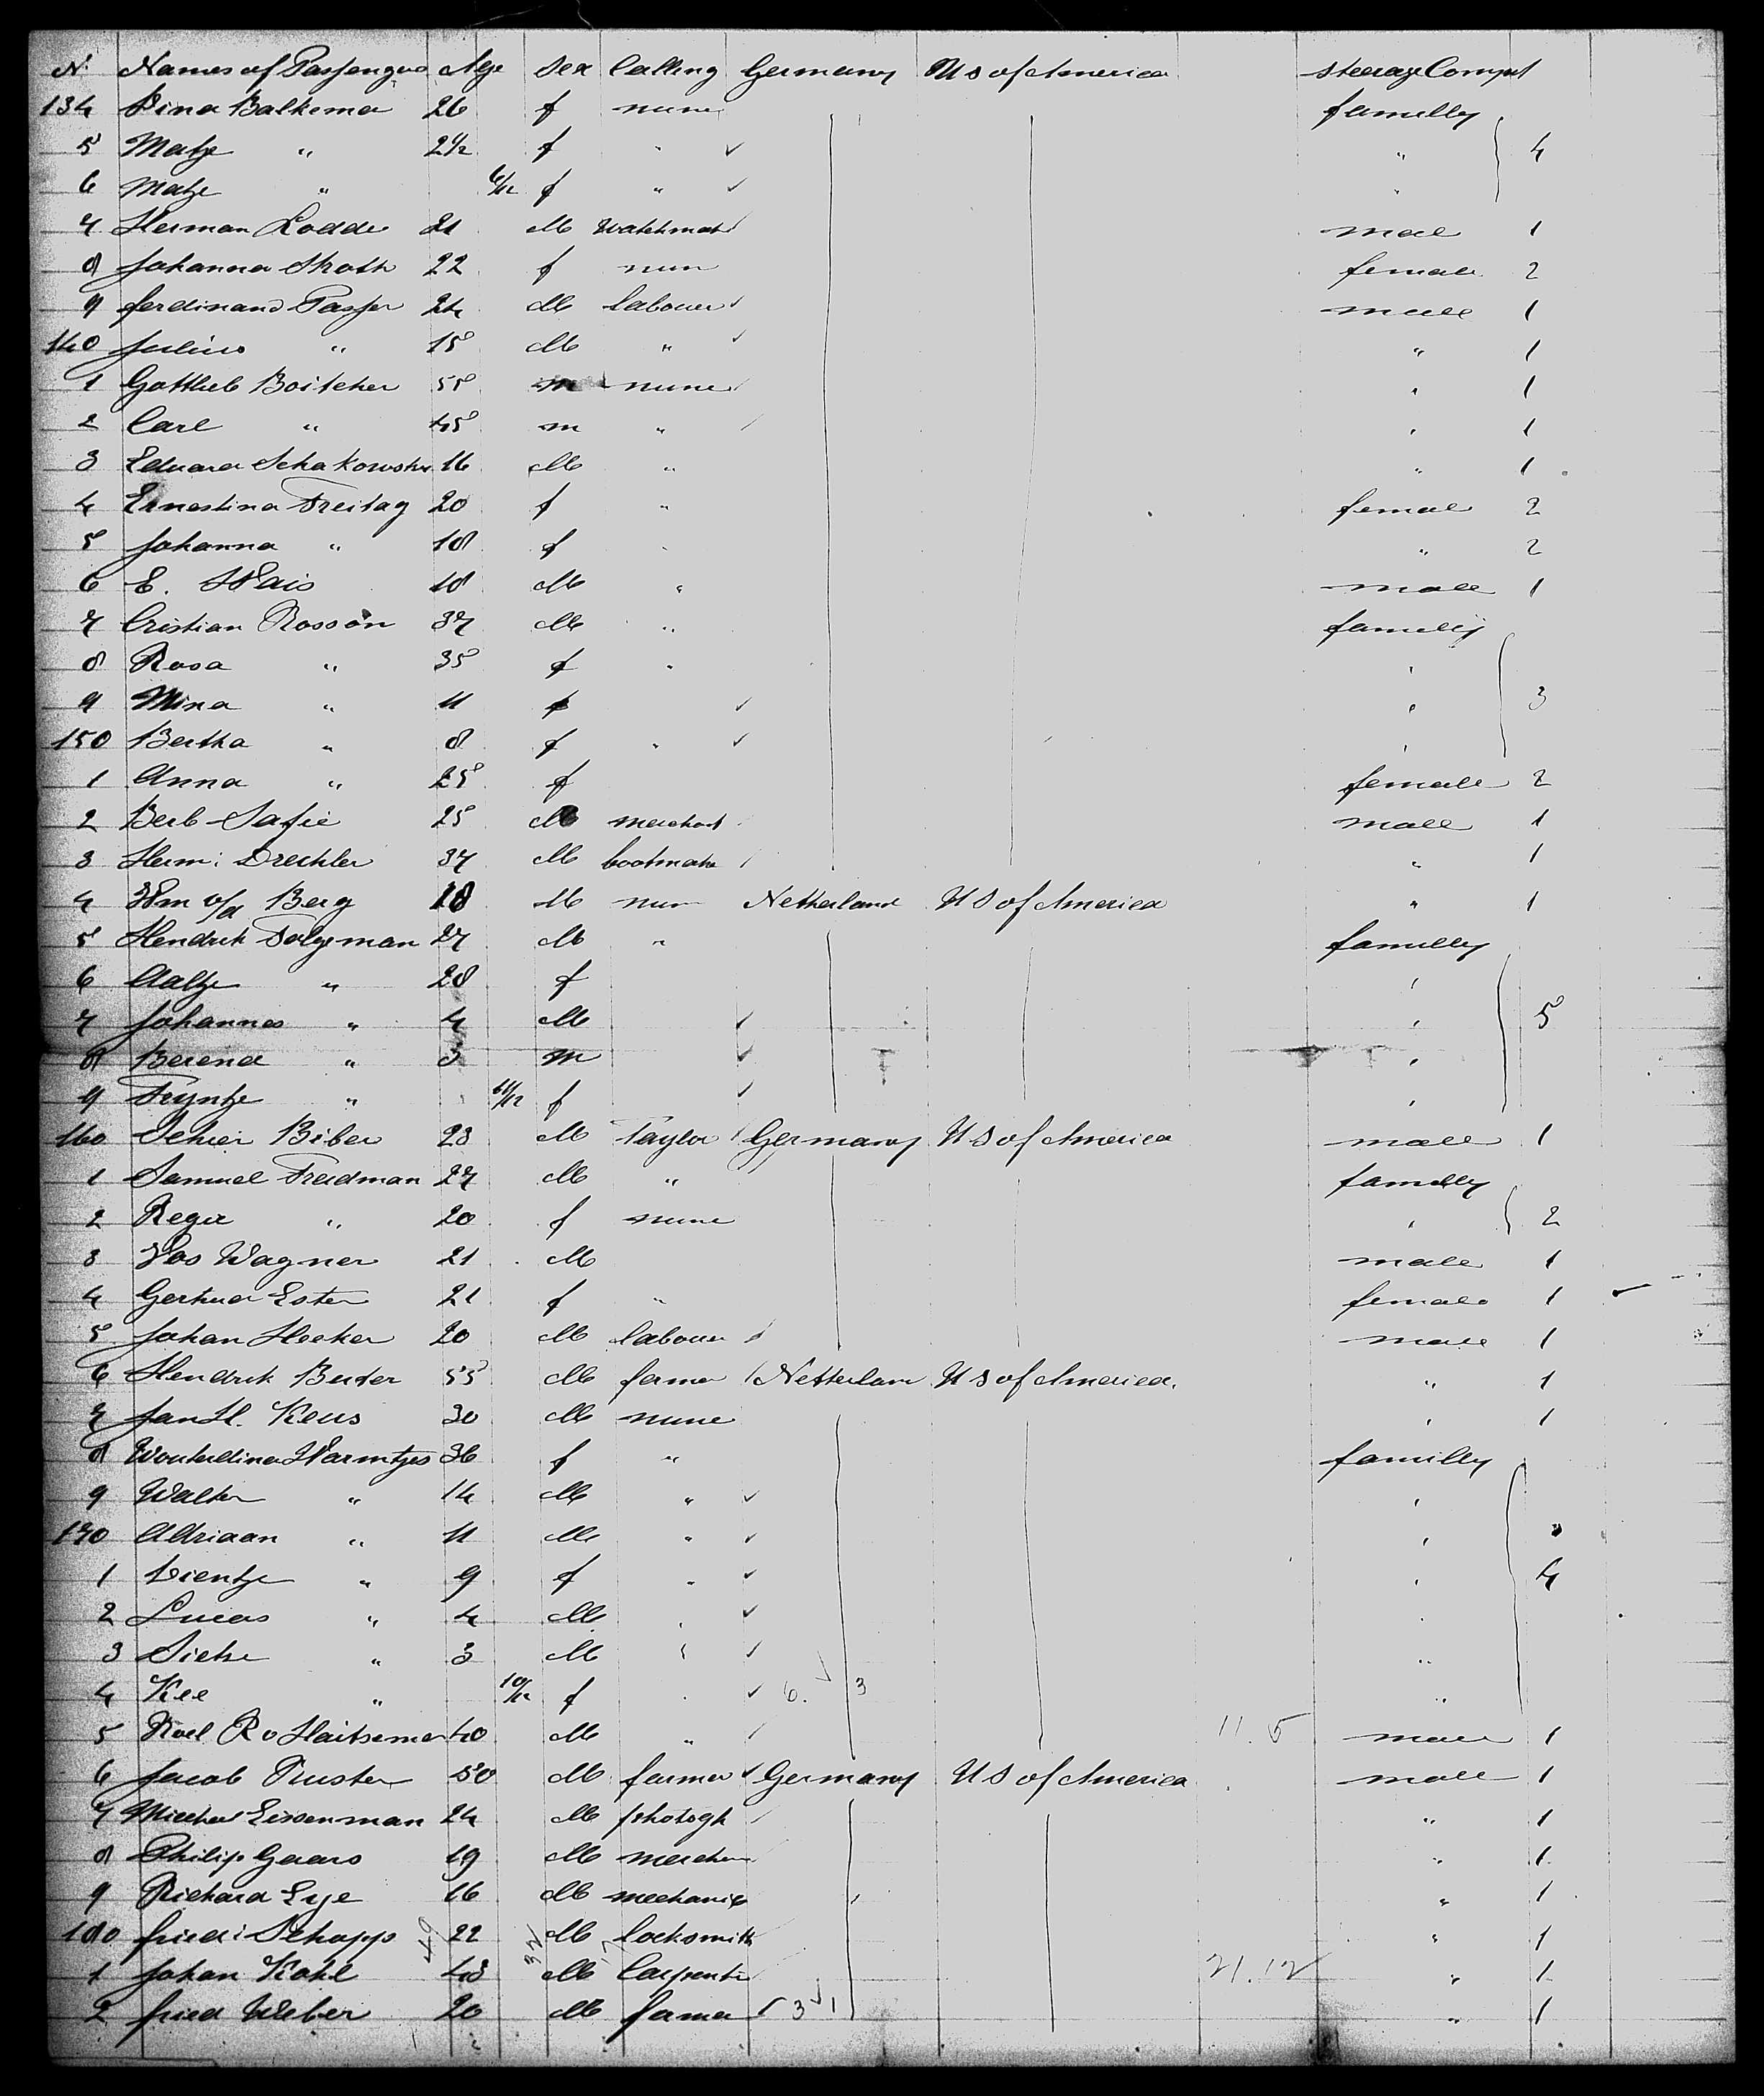 N. Names of Passengers Age Sex Calling Germany US of America Steerage Compt
134 Dina Balkema 26 f none familly
5 Matje " 2½ f " ✓ " 4
6 Matje " 6/12 f " ✓ "
7 Herman Lodde 21 M Watchmak male 1
8 Johanna Skoth 22 f non female 2
9 ferdinand Passer 24 M labouer male 1
140 Julius " 15 M " " 1
1 Gottlieb Boitcher 55 m none " 1
2 Carl " 45 m " " 1
3 Eduard Schakowsky 16 M " " 1
4 Ernestina Freitag 20 f " female 2
5 Johanna " 18 f " " 2
6 E. Wais 18 M " male 1
7 Cristian Rosson 37 M " familly
8 Rosa " 35 f " "
9 Mina " 11 f ✓ " 3
150 Bertha " 8 f " ✓ "
1 Anna " 25 f female 2
2 Berb Safie 25 M merchant male 1
3 Herm: Drechler 37 M bootmake " 1
4 Wm v/d Berg 18 M non Netherland US of America " 1
5 Hendrik Tolgeman 27 M " familly
6 Aaltje " 28 f "
7 Johannes " 4 M ✓ " 5
8 Berend " 3 m ✓ "
9 Tryntje " 11/12 f ✓ "
160 Schier Biber 23 M Taylor Germany US of America male 1
1 Samuel Freidman 27 M " familly
2 Regie " 20 f none " 2
3 Jos Wagner 21 M male 1
4 Gertrud Ester 21 f " female 1
5 Johan Hecker 20 M labouer male 1
6 Hendrik Buter 55 M farmer Netherlan US of America. " 1
7 Jan H. Keus 30 M none " 1
8 Wouterdina Warmtjes 36 f " familly
9 Walter " 14 M " ✓ "
170 Adriaan " 11 M " ✓ "
1 Dientje " 9 f " ✓ " 4
2 Lucas " 4 M " ✓ "
3 Sietse " 3 M " ✓ "
4 Kee " 10/12 f " ✓ 6. 3 "
5 Roel R v Haitsema 40 M " 11. 5 male 1
6 Jacob Pruster 50 M farmer ✓ Germany US of America male 1
7 Michael Eisenman 24 M photogh " 1
8 Philip Gaars 19 M merchan " 1
9 Richard Eye 16 M mechanik " 1
180 fried: Schopp 22 M locksmith " 1
1 Johan Kohl 43 M Carpente 21. 12 " 1
2 fried Weber 20 M farmer 3 1 " 1